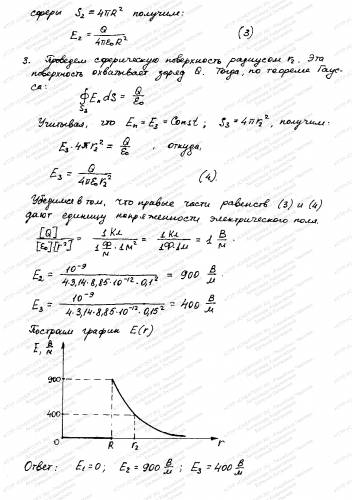 сферы S₂ = 4πR² получим:
E₂ = Q / 4πε₀R² (3)
3. Проведем сферическую поверхность радиусом r₂. Эта
поверхность охватывает заряд Q. Тогда, по теореме Гаус-
са:
∮_S₃ Eₙ dS = Q / ε₀
Учитывая, что Eₙ = E₃ = Const; S₃ = 4πr₂², получим:
E₃·4πr₂² = Q / ε₀, откуда,
E₃ = Q / 4πε₀r₂² (4)
Убедимся в том, что правые части равенств (3) и (4)
дают единицу напряженности электрического поля.
[Q] / [ε₀][r²] = 1 Кл / 1 Ф/м · 1м² = 1 Кл / 1Ф·1м = 1 В/м.
E₂ = 10⁻⁹ / 4·3,14·8,85·10⁻¹²·0,1² = 900 В/м
E₃ = 10⁻⁹ / 4·3,14·8,85·10⁻¹²·0,15² = 400 В/м
Построим график E(r)
E, В/м
900
400
R r₂ r
Ответ: E₁=0; E₂ = 900 В/м; E₃ = 400 В/м